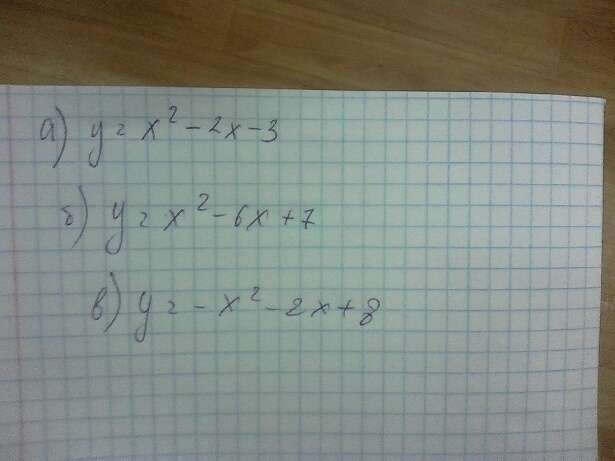 а) y = x² - 2x - 3
б) y = x² - 6x + 7
в) y = -x² - 2x + 8